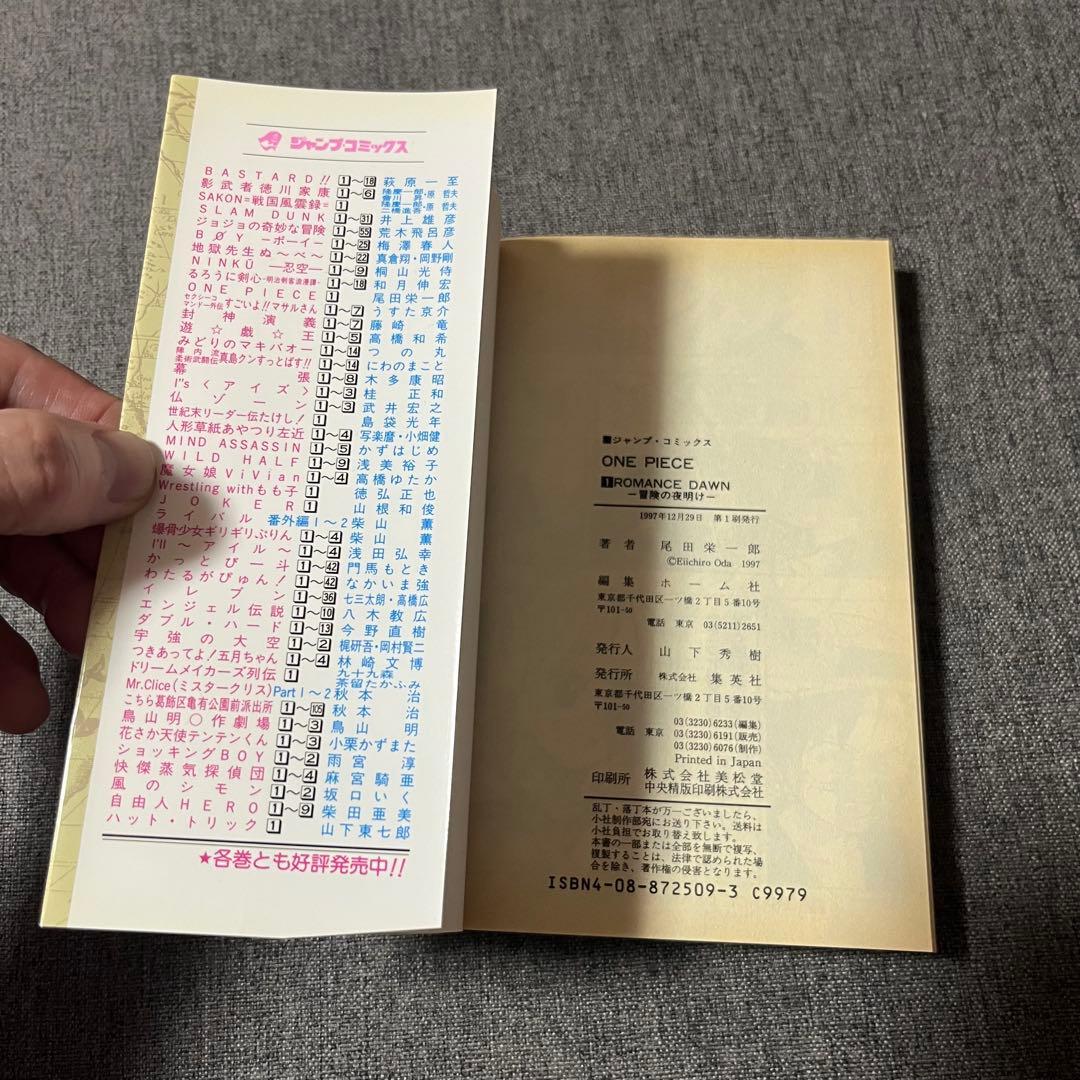 ジャンプ・コミックス
BASTARD!! 1〜18 萩原一至
影武者徳川家康 1〜6 隆慶一郎・原哲夫 會川昇
SAKON=戦国風雲録= 1 隆慶一郎・原哲夫 二橋進吾
SLAM DUNK 1〜31 井上雄彦
ジョジョの奇妙な冒険 1〜55 荒木飛呂彦
BØY —ボーイ— 1〜25 梅澤春人
地獄先生ぬ〜べ〜 1〜22 真倉翔・岡野剛
NINKŪ —忍空— 1〜9 桐山光侍
るろうに剣心-明治剣客浪漫譚- 1〜18 和月伸宏
ONE PIECE 1 尾田栄一郎
セクシーコマンドー外伝 すごいよ!!マサルさん 1〜7 うすた京介
封神演義 1〜7 藤崎竜
遊☆戯☆王 1〜5 高橋和希
みどりのマキバオー 1〜14 つの丸
陣内流柔術武闘伝 真島クンすっとばす!! 1〜14 にわのまこと
幕張 1〜8 木多康昭
I"s〈アイズ〉 1〜3 桂正和
仏ゾーン 1〜3 武井宏之
世紀末リーダー伝たけし! 1 島袋光年
人形草紙あやつり左近 1〜4 写楽麿・小畑健
MIND ASSASSIN 1〜5 かずはじめ
WILD HALF 1〜9 浅美裕子
魔女娘ViVian 1〜4 高橋ゆたか
Wrestling withもも子 1 徳弘正也
JOKER 1 山根和俊
ライバル 番外編1〜2 柴山薫
爆骨少女ギリギリぷりん 1〜4 柴山薫
I'll〜アイル〜 1〜4 浅田弘幸
かっとび一斗 1〜42 門馬もとき
わたるがぴゅん! 1〜42 なかいま強
イレブン 1〜36 七三太朗・高橋広
エンジェル伝説 1〜10 八木教広
ダブル・ハード 1〜13 今野直樹
宇強の大空 1〜2 梶研吾・岡村賢二
つきあってよ!五月ちゃん 1〜4 林崎文博
ドリームメイカーズ列伝 1 九十九森 茶留たかふみ
Mr.Clice(ミスタークリス) Part 1〜2 秋本治
こちら葛飾区亀有公園前派出所 1〜105 秋本治
鳥山明○作劇場 1〜3 鳥山明
花さか天使テンテンくん 1〜3 小栗かずまた
ショッキングBOY 1〜2 雨宮淳
快傑蒸気探偵団 1〜4 麻宮騎亜
風のシモン 1〜2 坂口いく
自由人HERO 1〜9 柴田亜美
ハット・トリック 1 山下東七郎
★各巻とも好評発売中!!
■ジャンプ・コミックス
ONE PIECE
1 ROMANCE DAWN
—冒険の夜明け—
1997年12月29日 第1刷発行
著者 尾田栄一郎
©Eiichiro Oda 1997
編集 ホーム社
東京都千代田区一ツ橋2丁目5番10号
〒101-50
電話 東京 03(5211)2651
発行人 山下秀樹
発行所 株式会社 集英社
東京都千代田区一ツ橋2丁目5番10号
〒101-50
03(3230)6233(編集)
電話 東京 03(3230)6191(販売)
03(3230)6076(制作)
Printed in Japan
印刷所 株式会社美松堂
中央精版印刷株式会社
乱丁・落丁本が万一ございましたら、
小社制作部宛にお送り下さい。送料は
小社負担でお取り替え致します。
本書の一部または全部を無断で複写、
複製することは、法律で認められた場
合を除き、著作権の侵害となります。
ISBN4-08-872509-3 C9979